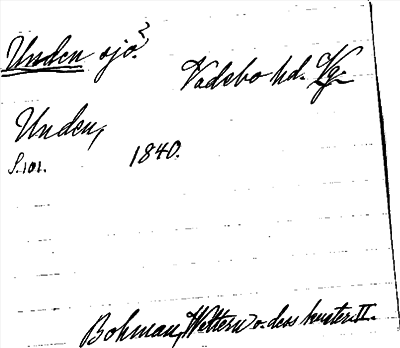 Unden sjö.²
Vadsbo hd. Vg.
Unden,
S. 101.
1840.
Bohman, Wettern o. dess kuster. II.